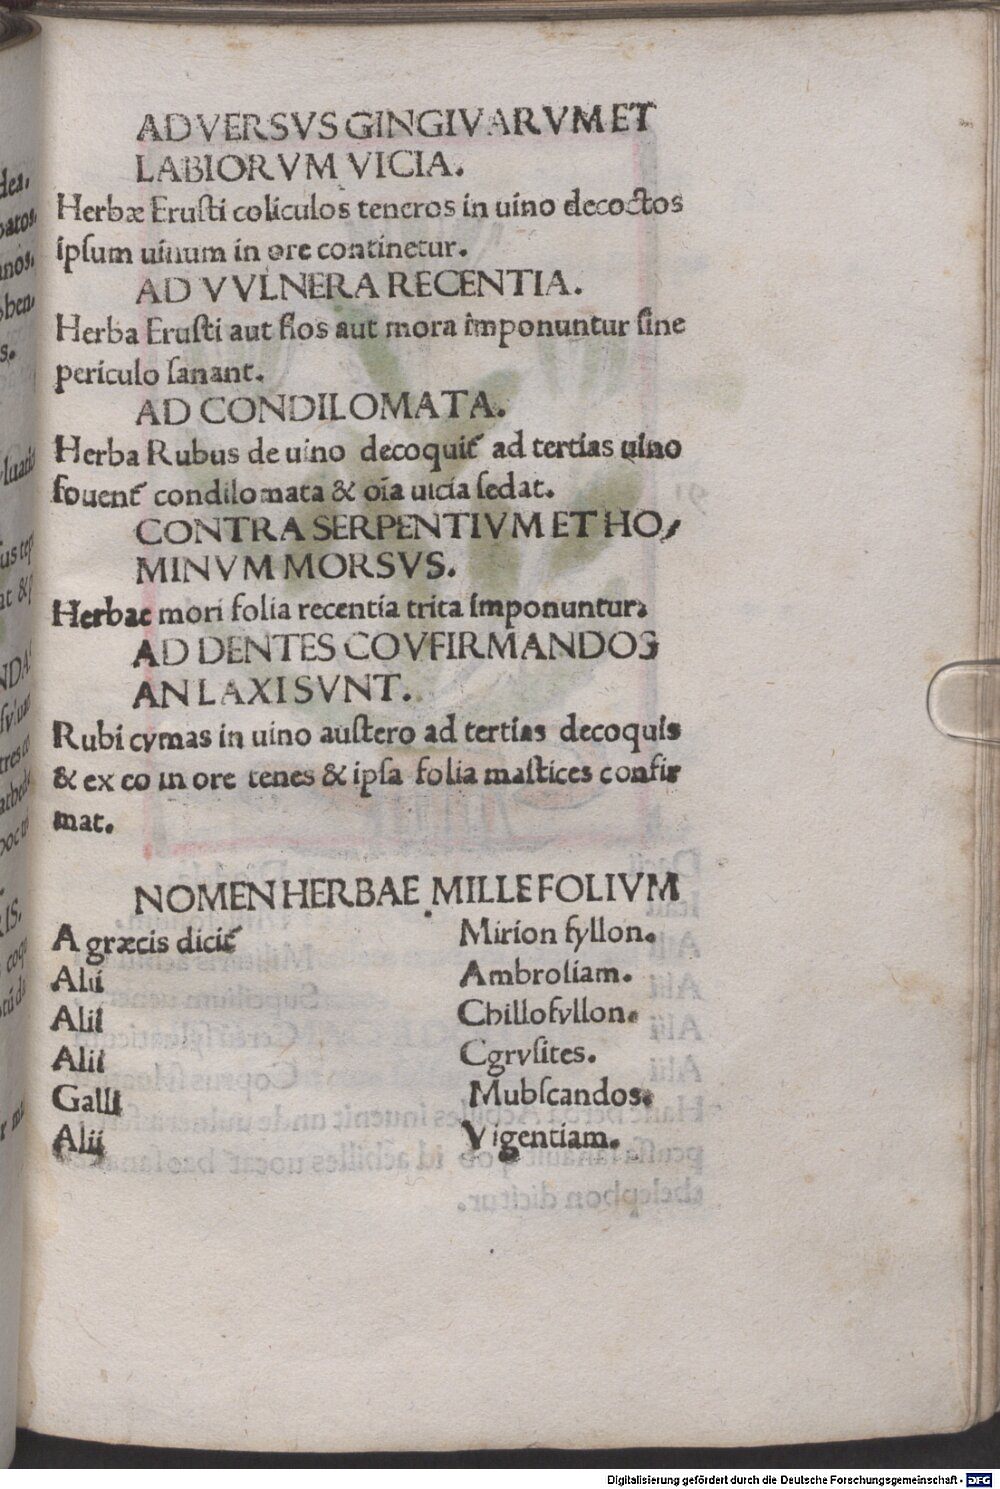 ADVERSVS GINGIVARVM ET
LABIORVM VICIA.
Herbæ Eruſti coliculos teneros in uino decoctos
ipſum uinum in ore continetur.
AD VVLNERA RECENTIA.
Herba Eruſti aut flos aut mora imponuntur ſine
periculo ſanant.
AD CONDILOMATA.
Herba Rubus de uino decoquit᷑ ad tertias uino
fouent᷑ condilomata & oĩa uicia ſedat.
CONTRA SERPENTIVM ET HO⸗
MINVM MORSVS.
Herbae mori folia recentia trita imponuntur.
AD DENTES COVFIRMANDOS
AN LAXI SVNT.
Rubi cymas in uino auſtero ad tertias decoquis
& ex eo in ore tenes & ipſa folia maſtices confir
mat.
NOMEN HERBAE MILLEFOLIVM
A græcis dicit᷑ Mirion fyllon.
Alii Ambroſiam.
Alii Chillofyllon.
Alii Cgryſites.
Galli Mubſcandos.
Alii Vigentiam.
Digitalisierung gefördert durch die Deutsche Forschungsgemeinschaft - DFG